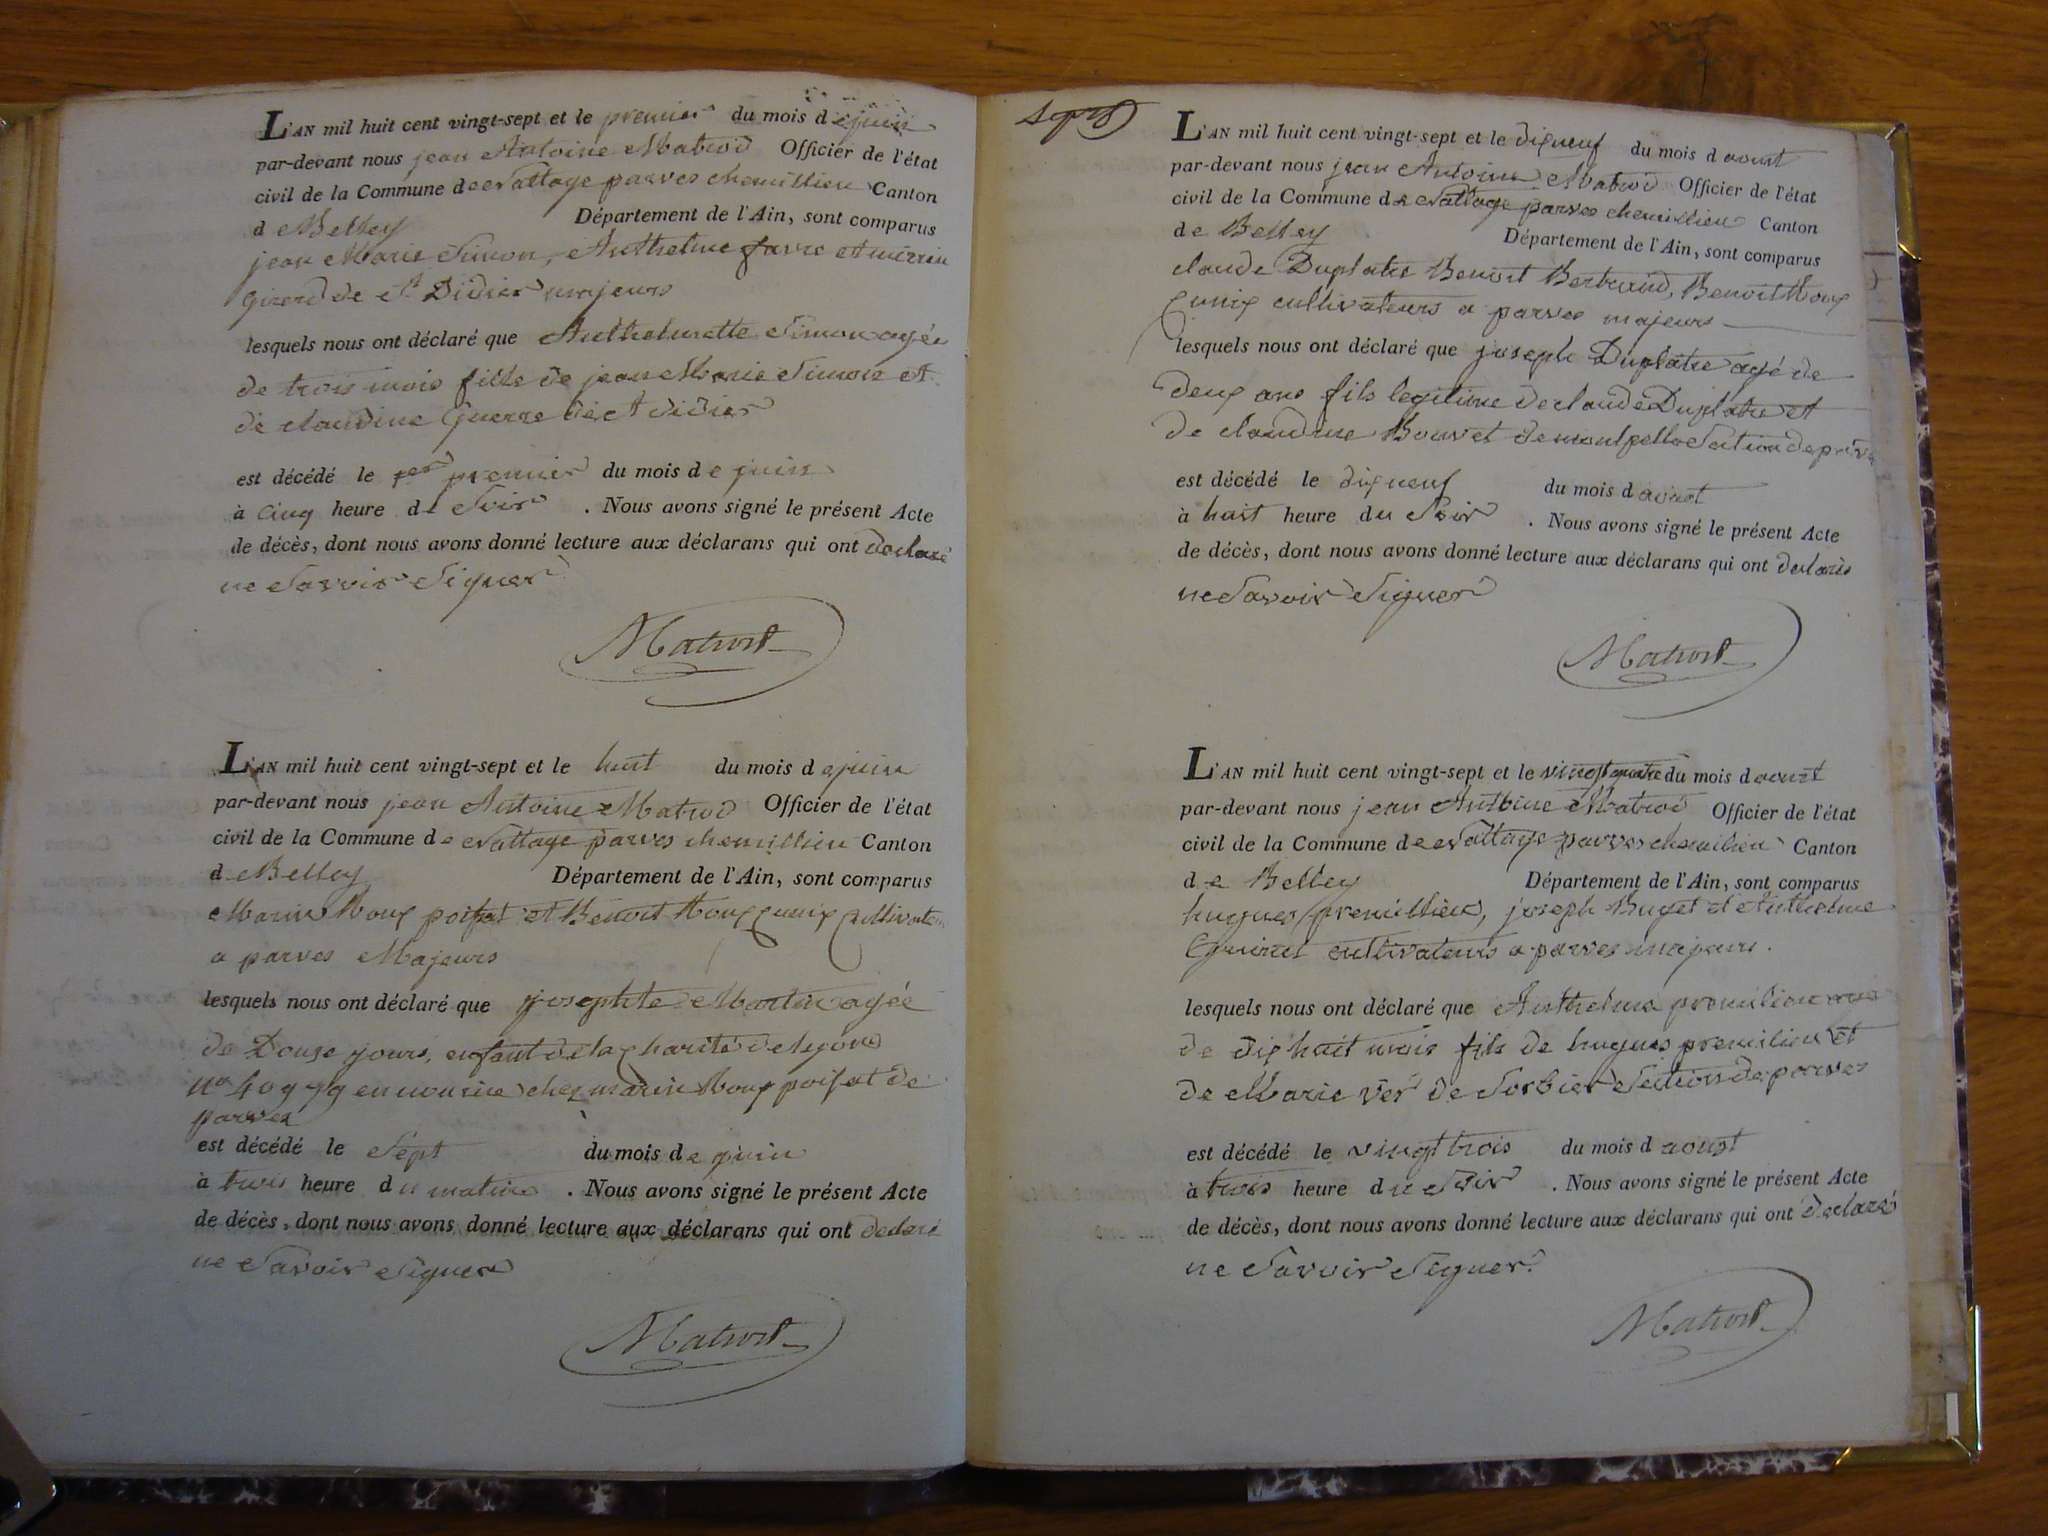 L'AN mil huit cent vingt-sept et le premier du mois de juin
par-devant nous jean Antoine Matrod Officier de l'état
civil de la Commune de Nattage parves chemillieu Canton
de Belley Département de l'Ain, sont comparus
jean Marie Simon, Anthelme favre et
girerd de St Didier majeurs
lesquels nous ont déclaré que Anthelmette Simon agée
de trois mois fille de jean Marie Simon et
de claudine Guerre de St didier
est décédé le premier du mois de juin
à cinq heure de Soir . Nous avons signé le présent Acte
de décès, dont nous avons donné lecture aux déclarans qui ont declaré
ne Savoir Signer
Matrod
L'AN mil huit cent vingt-sept et le huit du mois de juin
par-devant nous jean Antoine Matrod Officier de l'état
civil de la Commune de Nattage parves chemillieu Canton
de Belley Département de l'Ain, sont comparus
Marin Roux poifat et Benoit Roux cultivateurs
a parves Majeurs
lesquels nous ont déclaré que josephte Martin agée
de Douze jours, enfant de la charité de lyon
no 40979 en nourice chez marin Roux poifat de
parves
est décédé le Sept du mois de juin
à trois heure du matin . Nous avons signé le présent Acte
de décès, dont nous avons donné lecture aux déclarans qui ont declaré
ne Savoir Signer
Matrod
L'AN mil huit cent vingt-sept et le dixneuf du mois d aoust
par-devant nous jean Antoine Matrod Officier de l'état
civil de la Commune de Nattage parves chemillieu Canton
de Belley Département de l'Ain, sont comparus
claude Duplatre Benoit Bertrand, Benoit Roux
cultivateurs a parves majeurs
lesquels nous ont déclaré que joseph Duplatre agé de
deux ans fils legitime de claude Duplatre et
de claudine Bouvet de montpellé Section de parves
est décédé le dixneuf du mois d aoust
à huit heure du Soir . Nous avons signé le présent Acte
de décès, dont nous avons donné lecture aux déclarans qui ont declarés
ne Savoir Signer
Matrod
L'AN mil huit cent vingt-sept et le vingt quatre du mois d aoust
par-devant nous jean Antoine Matrod Officier de l'état
civil de la Commune de Nattage parves chemilieu Canton
de Belley Département de l'Ain, sont comparus
hugues premillieu, joseph Buget et Anthelme
cultivateurs a parves majeurs.
lesquels nous ont déclaré que Anthelme premilieu
de dix huit mois fils de hugues premilieu et
de Marie ver de Sorbier Section de parves
est décédé le vingt trois du mois d aoust
à trois heure du Soir . Nous avons signé le présent Acte
de décès, dont nous avons donné lecture aux déclarans qui ont declaré
ne Savoir Signer.
Matrod